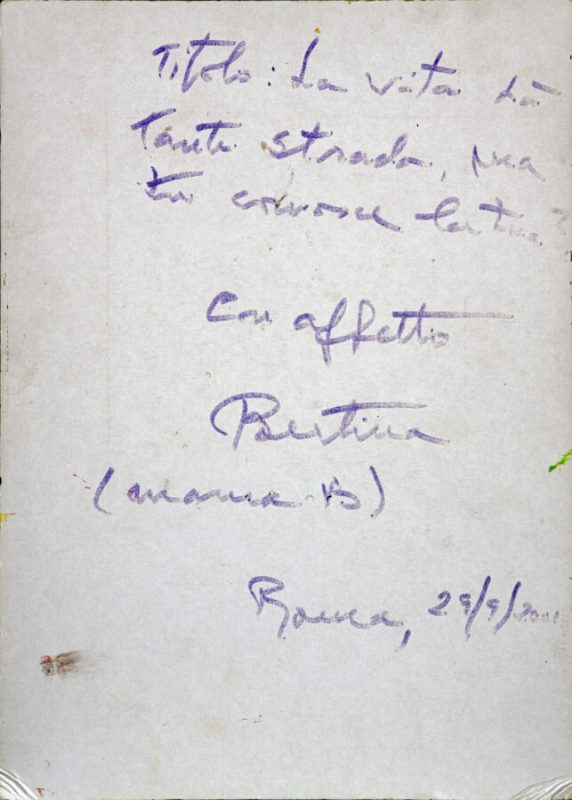 Titolo: La vita dà
tante strada, ma
tu conosce la tua?
Con affetto
Bertina
(mama B)
Roma, 29/9/2001